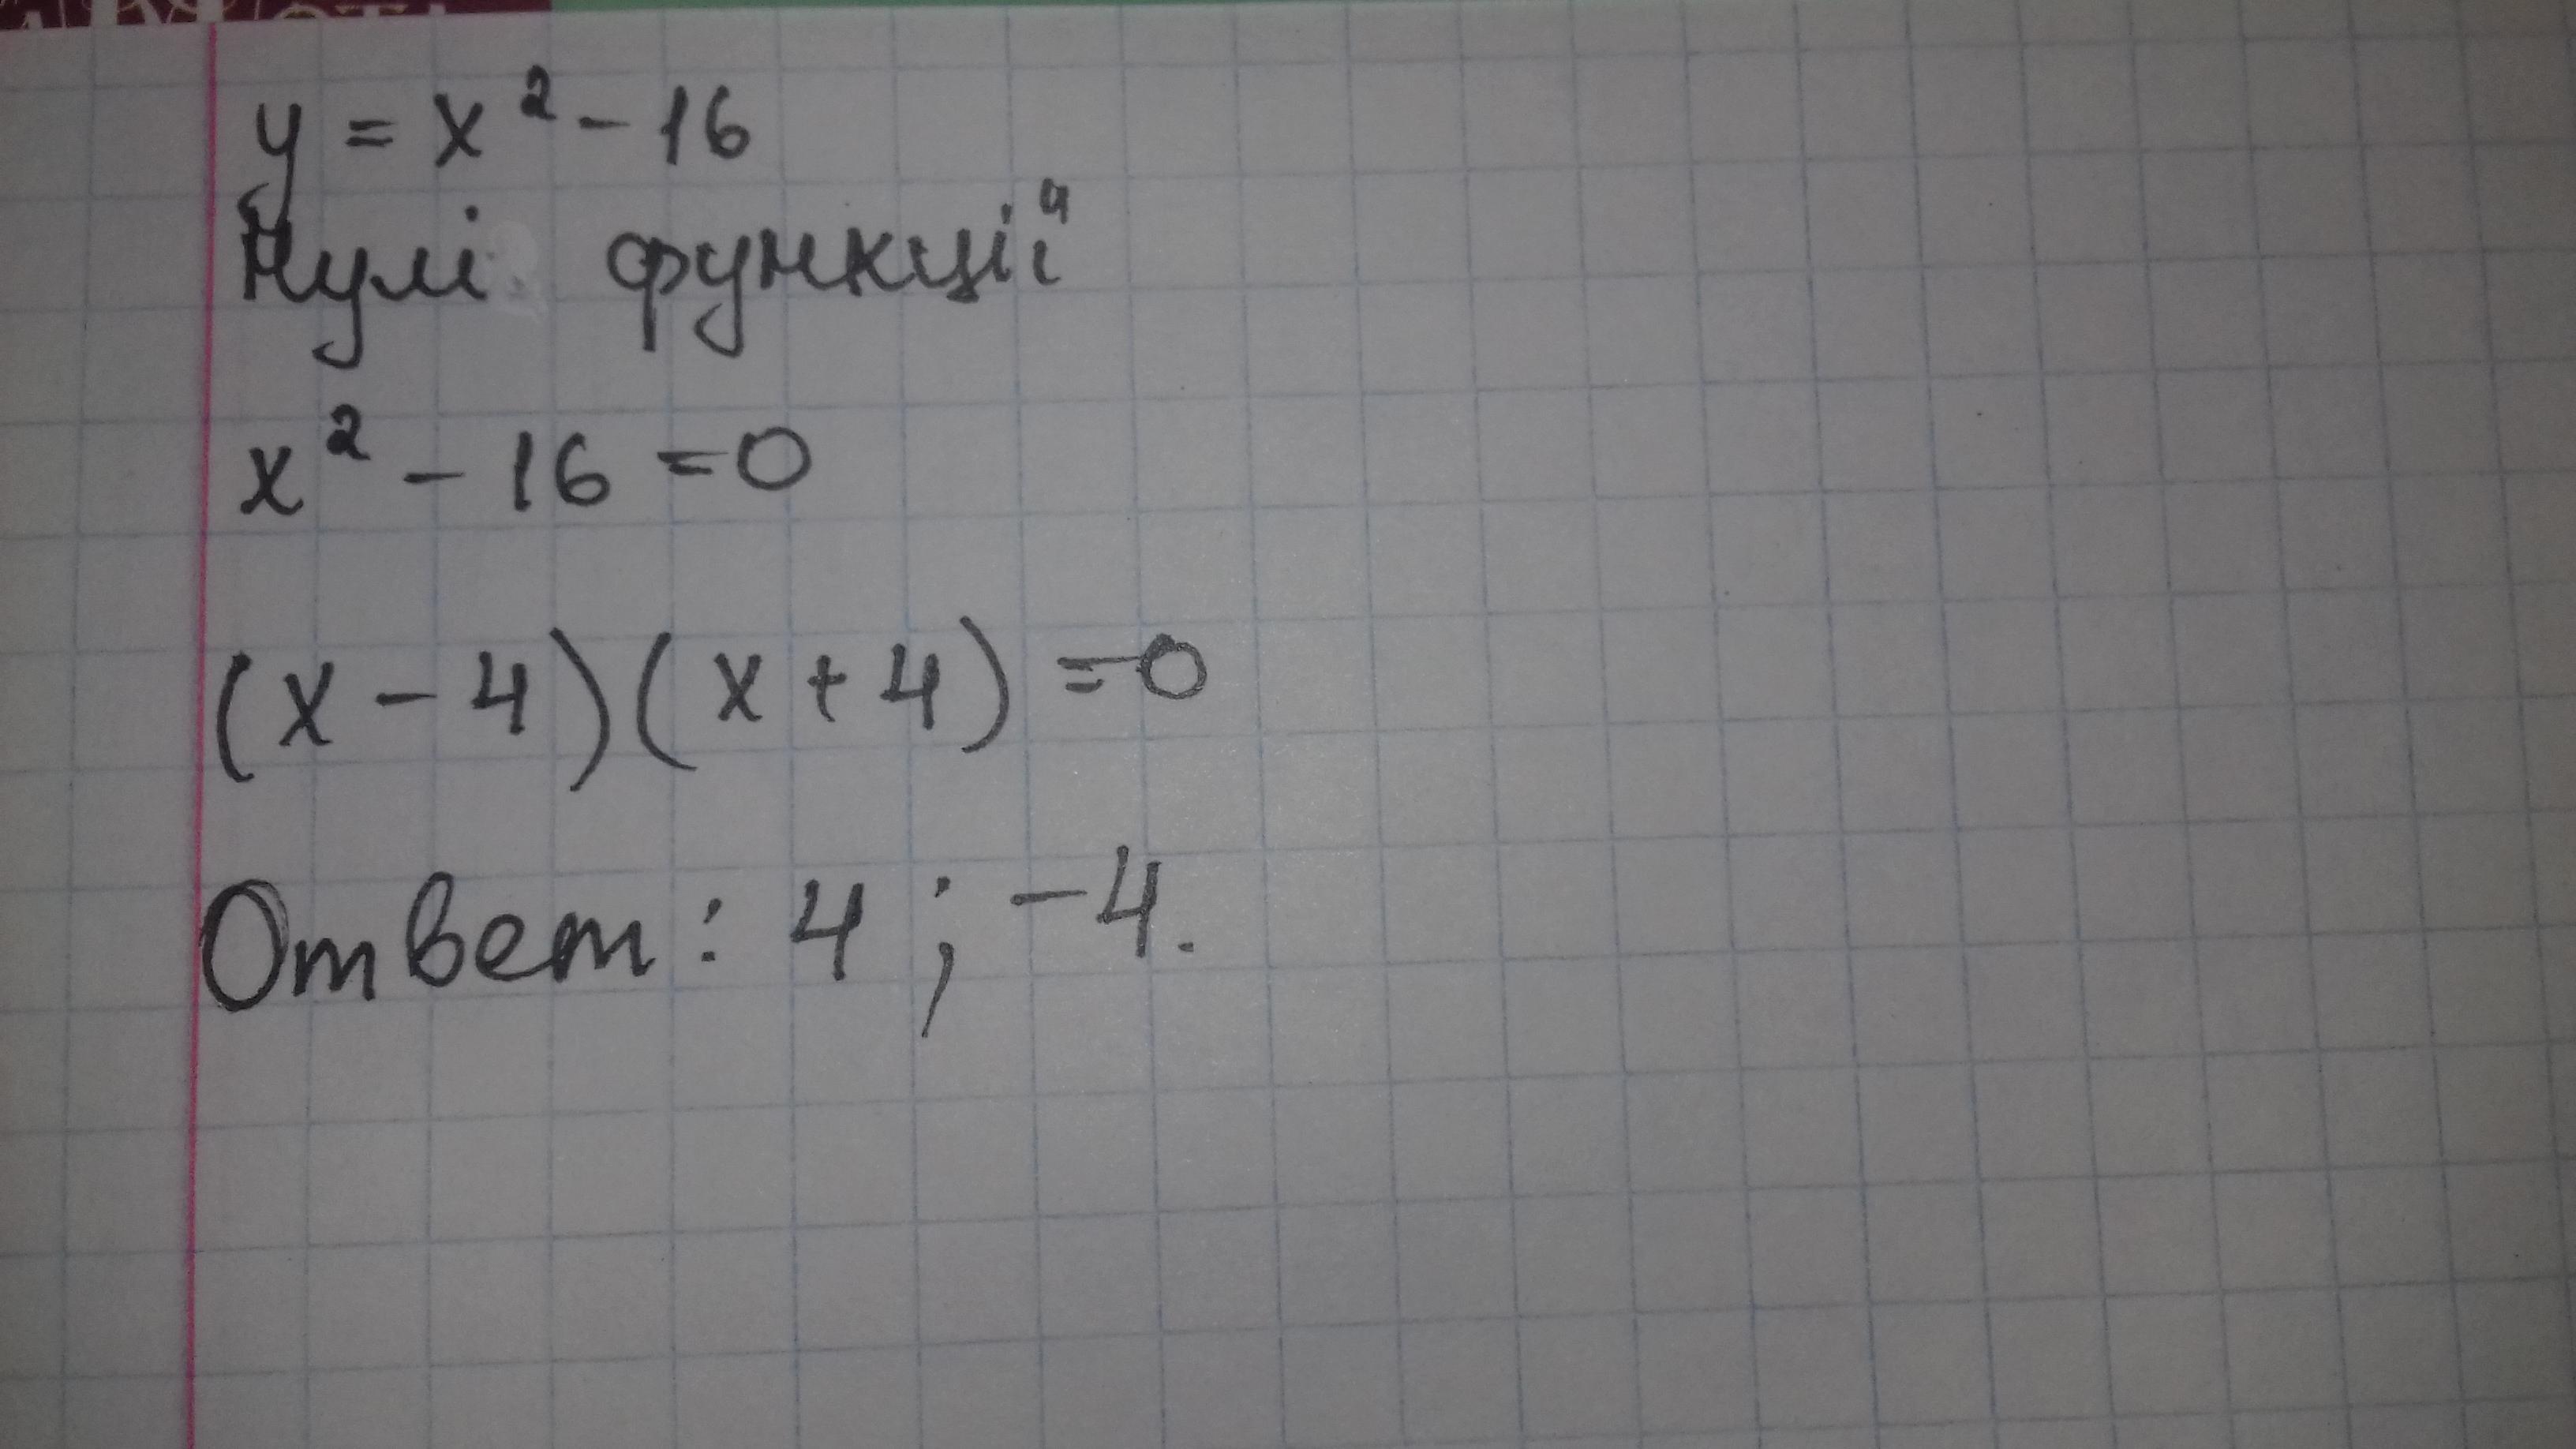 y = x² - 16
Нулі функції
x² - 16 = 0
(x - 4)(x + 4) = 0
Ответ: 4; -4.